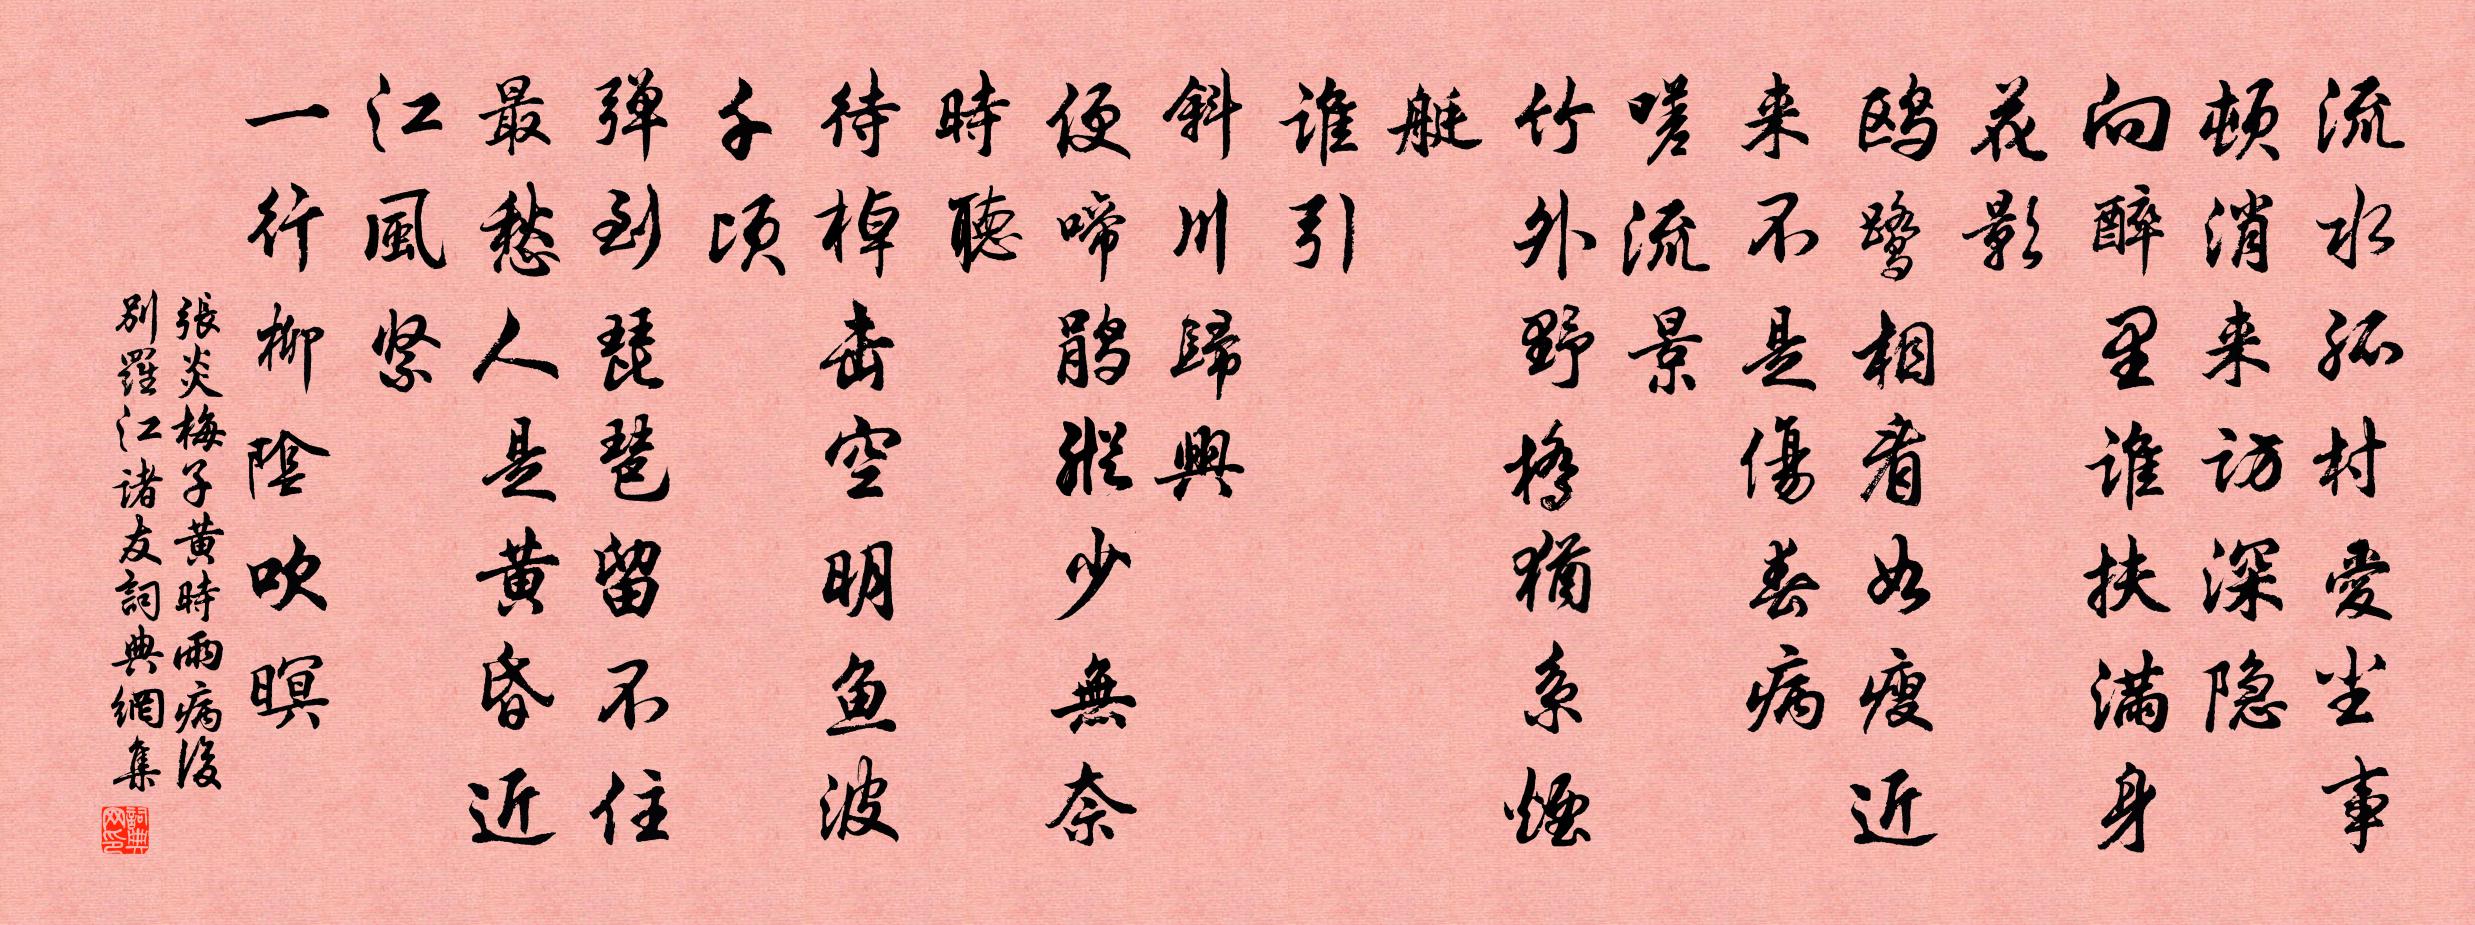 流水孤村愛尘事
顿消来訪深隐
向醉里谁扶满身
花影
鸥鹭相看如瘦近
来不是傷春病
嗟流景
竹外野橋猶系煙
艇
谁引
斜川歸興
便啼鹃縱少無奈
時聽
待棹击空明鱼波
千顷
弹到琵琶留不住
最愁人是黄昏近
江風紧
一行柳陰吹暝
張炎梅子黄時雨病後
别羅江诸友詞典網集
詞典网印